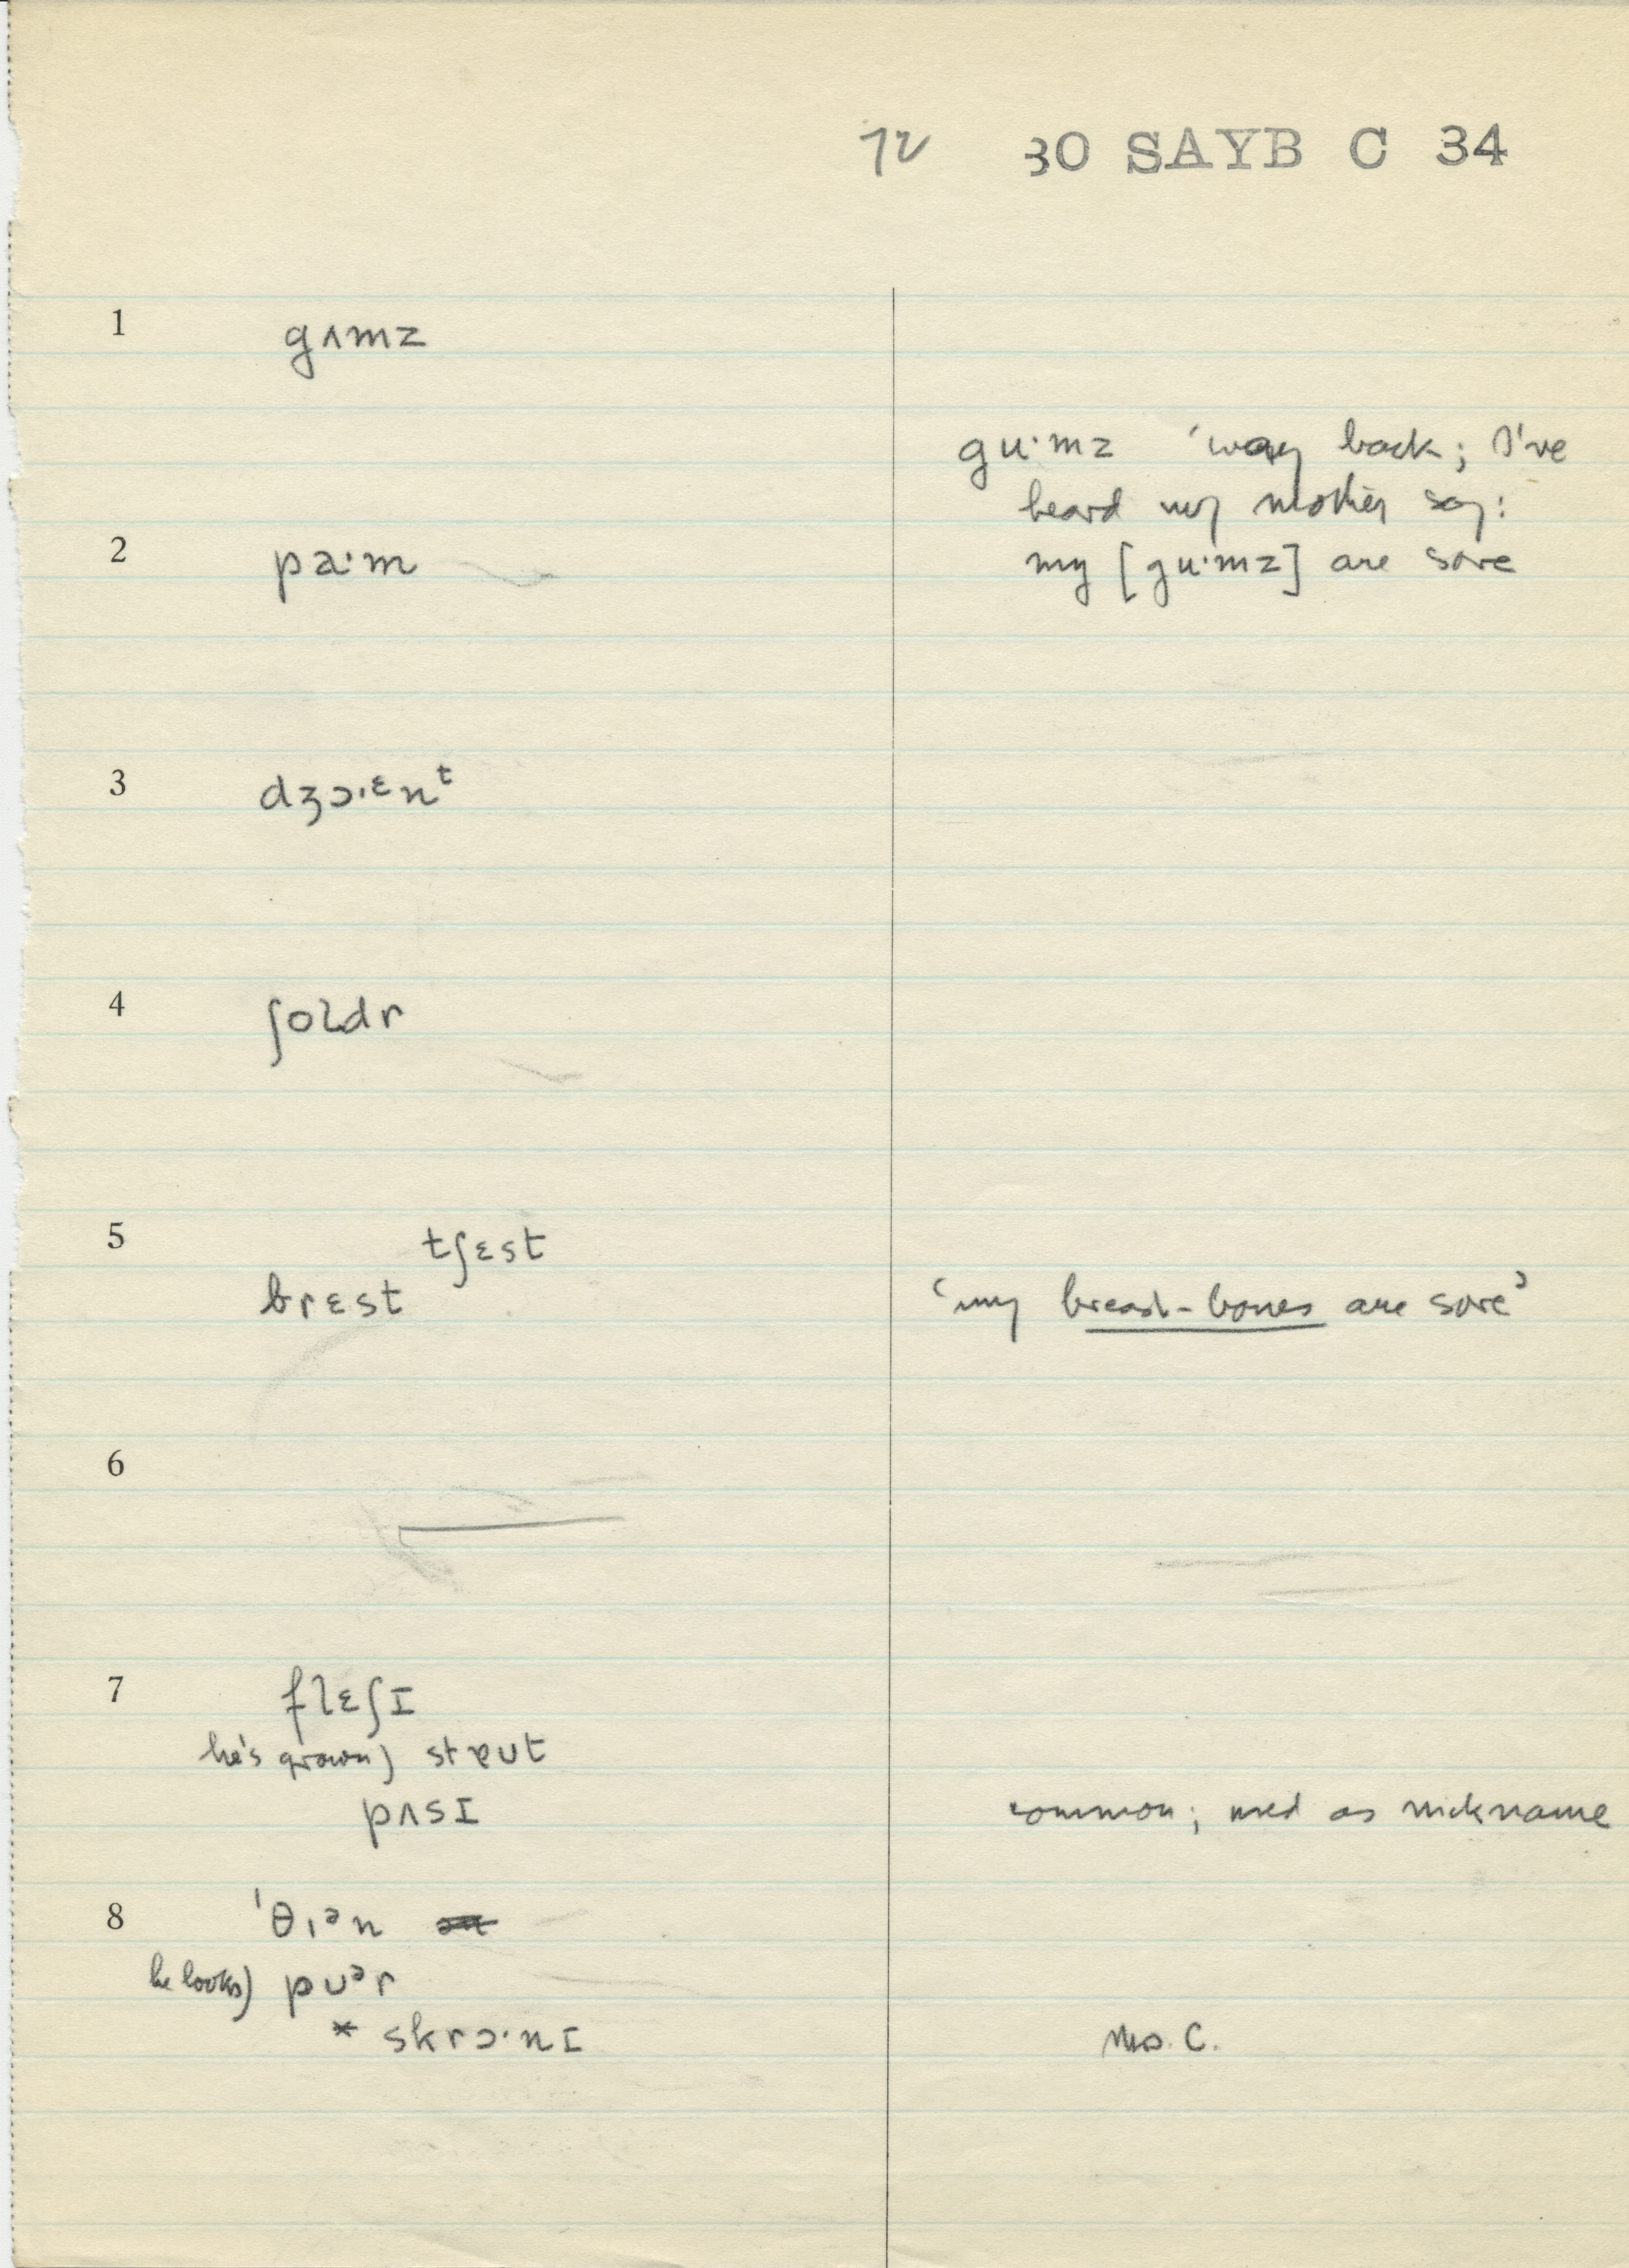 72 30 SAYB C 34
1 gʌmz
gu·mz 'way back; I've
heard my mother say:
2 pa·m my [gu·mz] are sore
3 dʒɔ·ɛnᵗ
4 ʃoldr
5 tʃɛst
brɛst 'my breast-bones are sore'
6
7 flɛʃɪ
he's grown) stɐut
pʌsɪ common; used as nickname
8 'θɪᵊn
he looks) pʊᵊr
* skrɔ·nɪ Mrs. C.